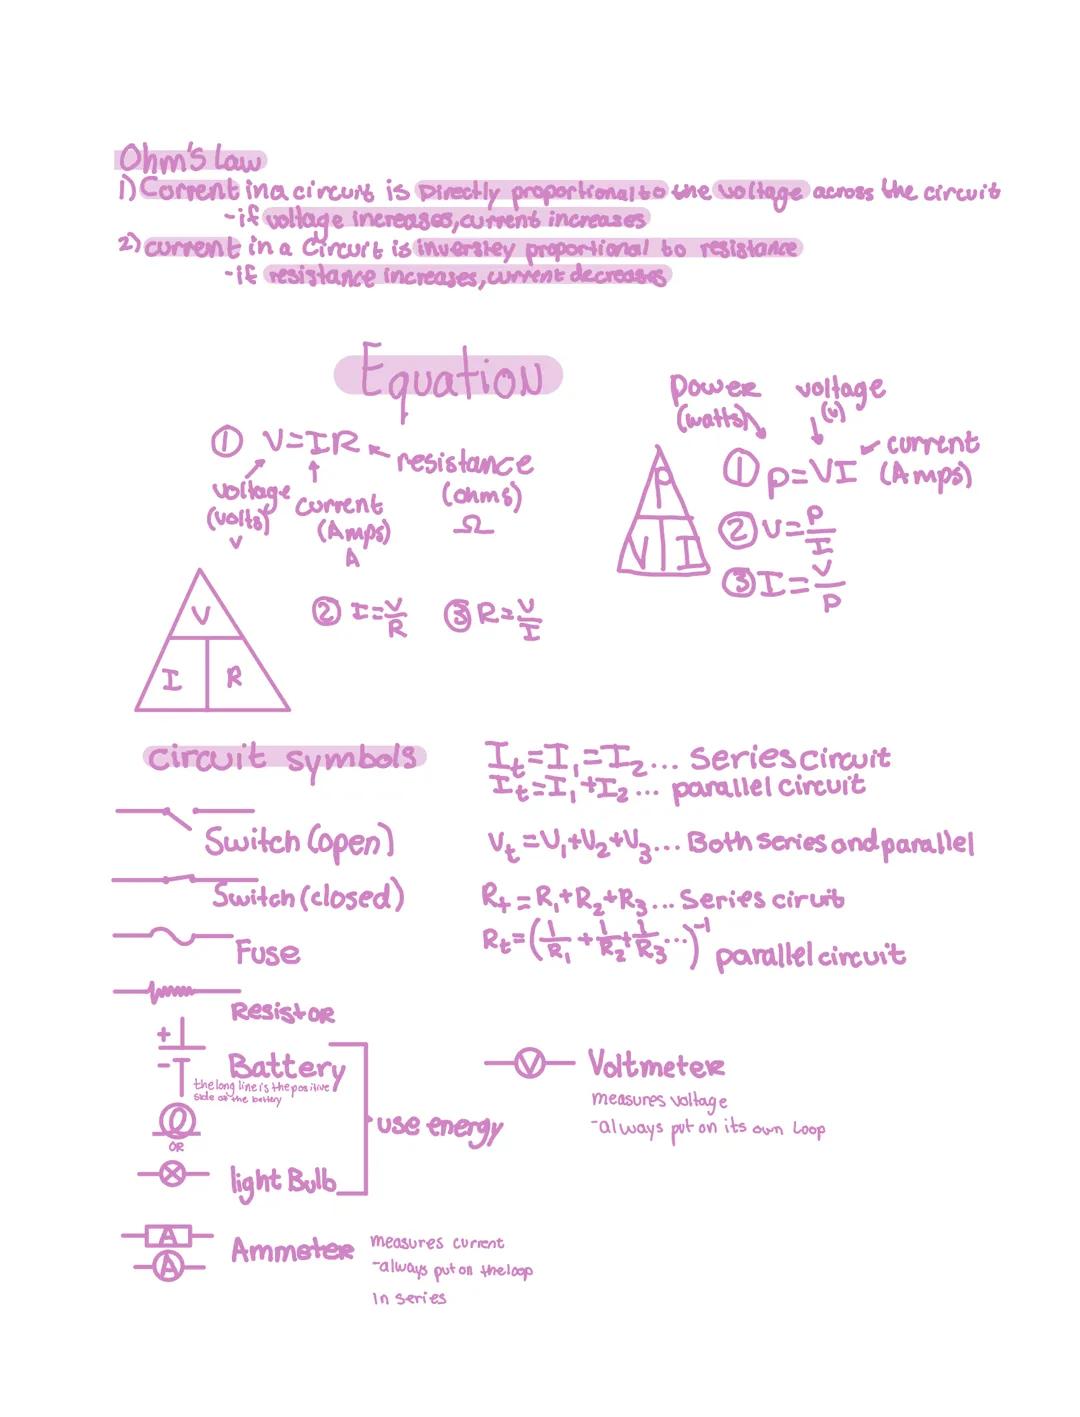 Ohm's Law
1) Current in a circuit is Directly proportional to the voltage across the circuit
-if voltage increases, current increases
2) current in a Circuit is inversley proportional to resistance
-if resistance increases, current decreases
Equation
① V=IR
resistance
(ohms)
Ω
voltage
(volts)
V
current
(Amps)
A
V
I R
② I=V/R ③ R=V/I
power
(watts)
voltage
(v)
current
(Amps)
P
V I
① P=VI
② V=P/I
③ I=V/P
circuit symbols
Switch (open)
Switch (closed)
Fuse
Resistor
+
-
Battery
the long line is the positive
side of the battery
OR
light Bulb
use energy
A
A
Ammeter
measures current
-always put on the loop
in series
It=I1=I2... Series circuit
It=I1+I2... parallel circuit
Vt=V1+V2+V3... Both series and parallel
Rt=R1+R2+R3... Series ciruit
Rt=(1/R1+1/R2+1/R3...)-1 parallel circuit
V
Voltmeter
measures voltage
-always put on its own loop